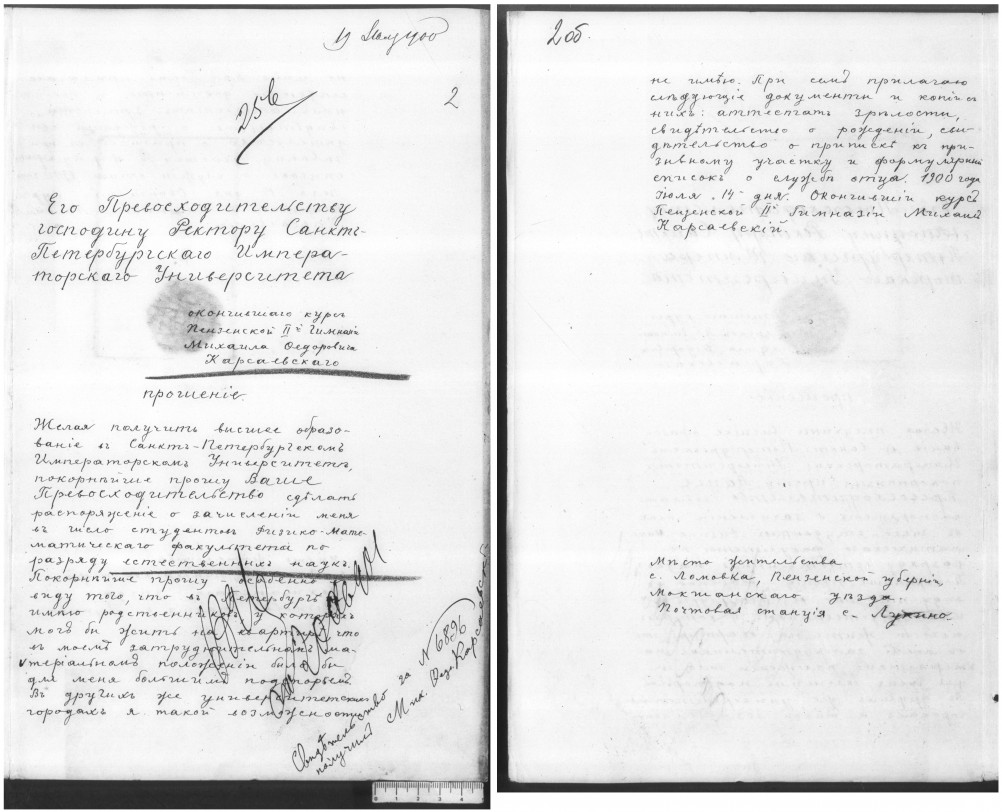 2
25 в
Его Превосходительству
господину Ректору Санктъ-
Петербургскаго Импера-
торскаго Университета
окончившаго курсъ
Пензенской IIй Гимназіи
Михаила Ѳедоровича
Карсаевскаго
прошеніе.
Желая получить высшее образо-
ваніе въ Санктъ-Петербургскомъ
Императорскомъ Университетѣ,
покорнѣйше прошу Ваше
Превосходительство сдѣлать
распоряженіе о зачисленіи меня
въ число студентовъ Физико-Мате-
матическаго факультета по
разряду естественныхъ наукъ.
Покорнѣйше прошу - особенно
виду того, что въ Петербургѣ
имѣю родственниковъ, у которыхъ
могъ бы жить на квартирѣ, что
въ моемъ затруднительномъ ма-
теріальномъ положеніи было бы
для меня большимъ подспорьемъ
Въ другихъ же университетскихъ
городахъ я такой возможности
Свидѣтельство за № 6896
получилъ Мих. Ѳед. Карсаевскій
2 об.
не имѣю. При семъ прилагаю
слѣдующіе документы и копіи съ
нихъ: аттестатъ зрѣлости,
свидѣтельство о рожденіи, сви-
дѣтельство о припискѣ къ при-
зывному участку и формулярный
списокъ о службѣ отца. 1900 года
Іюля 14 дня. Окончившій курсъ
Пензенской IIй Гимназіи Михаилъ
Карсаевскій.
Мѣсто жительства
с. Ломовка, Пензенской губерніи,
Мокшанскаго уѣзда.
Почтовая станція с. Лунино.